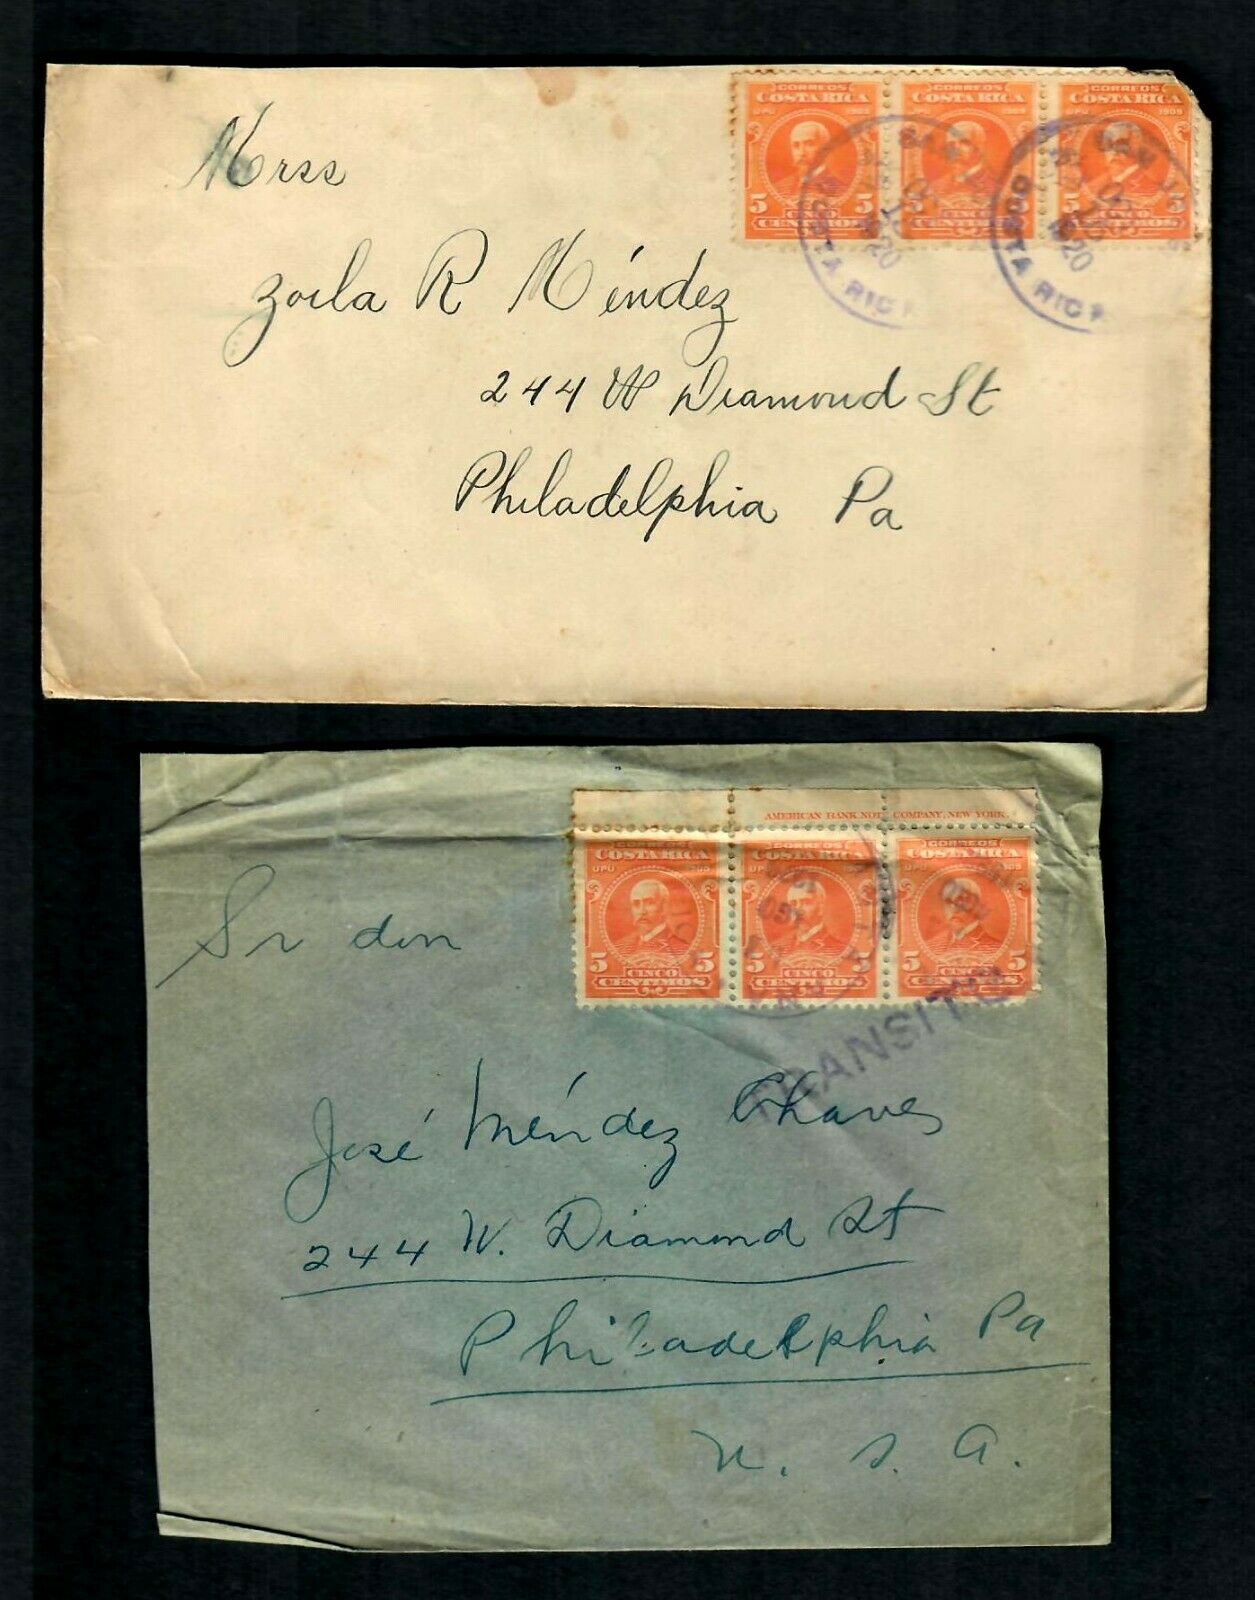 CORREOS CORREOS CORREOS
COSTA RICA COSTA RICA COSTA RICA
UPU 1905
5 5 5 5 5 5
CINCO CINCO CINCO
CENTIMOS CENTIMOS CENTIMOS
SAN
1920
COSTA RIC
1920
COSTA RIC
Mrss
Zoila R Méndez
244 W Diamond St
Philadelphia Pa
AMERICAN BANK NOTE COMPANY, NEW YORK.
CORREOS CORREOS CORREOS
COSTA RICA COSTA RICA COSTA RICA
UPU
5 5 5 5 5 5
CINCO CINCO CINCO
CENTIMOS CENTIMOS CENTIMOS
TRANSITO
Sr don
José Méndez Chaves
244 W. Diamond St
Philadelphia Pa
U. S. A.